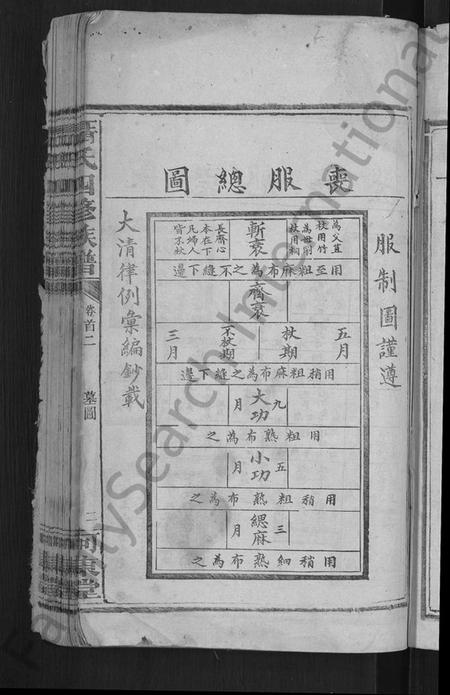 喪服總圖
服制圖謹遵
斬衰
為父直杖用竹
為母削杖用桐
長齊心
本在下
凡婦人
皆不杖
用至粗麻布為之不縫下邊
齊衰
五月
杖期
不杖期
三月
用稍粗麻布為之縫下邊
大功
九月
用粗熟布為之
小功
五月
用稍粗熟布為之
緦麻
三月
用稍細熟布為之
大清律例彙編鈔載
氏四修族譜
卷首二
墓圖
二
FamilySearch International